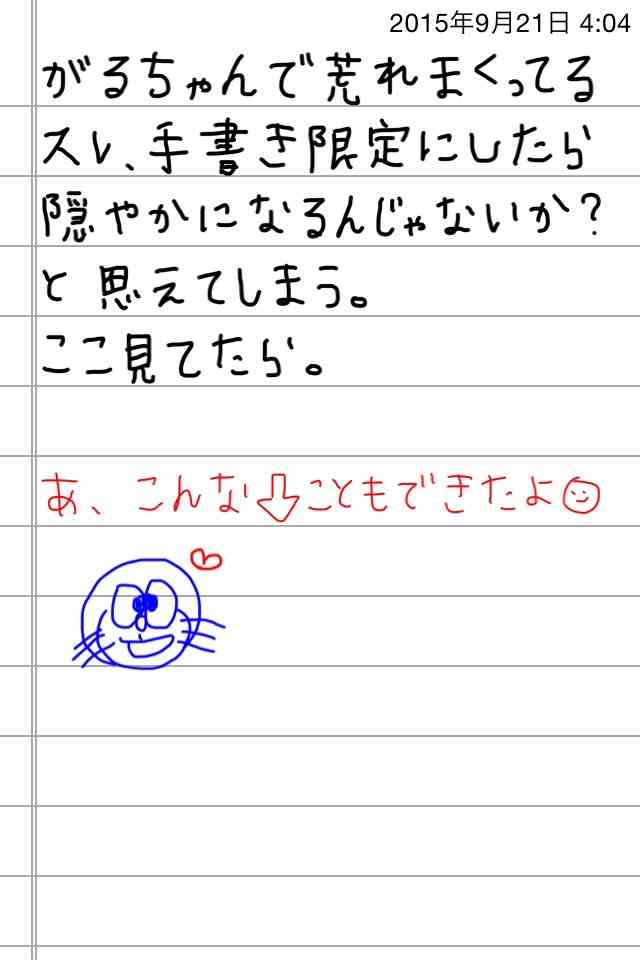 2015年9月21日 4:04
がるちゃんで荒れまくってる
スレ、手書き限定にしたら
隠やかになるんじゃないか?
と思えてしまう。
ここ見てたら。
あ、こんな⇩こともできたよ☺